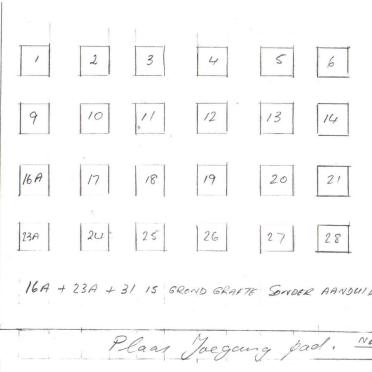 1 2 3 4 5 6
9 10 11 12 13 14
16A 17 18 19 20 21
23A 24 25 26 27 28
16A + 23A + 31 IS GROND GRAFTE SONDER AANDUI
Plaas Toegang pad.